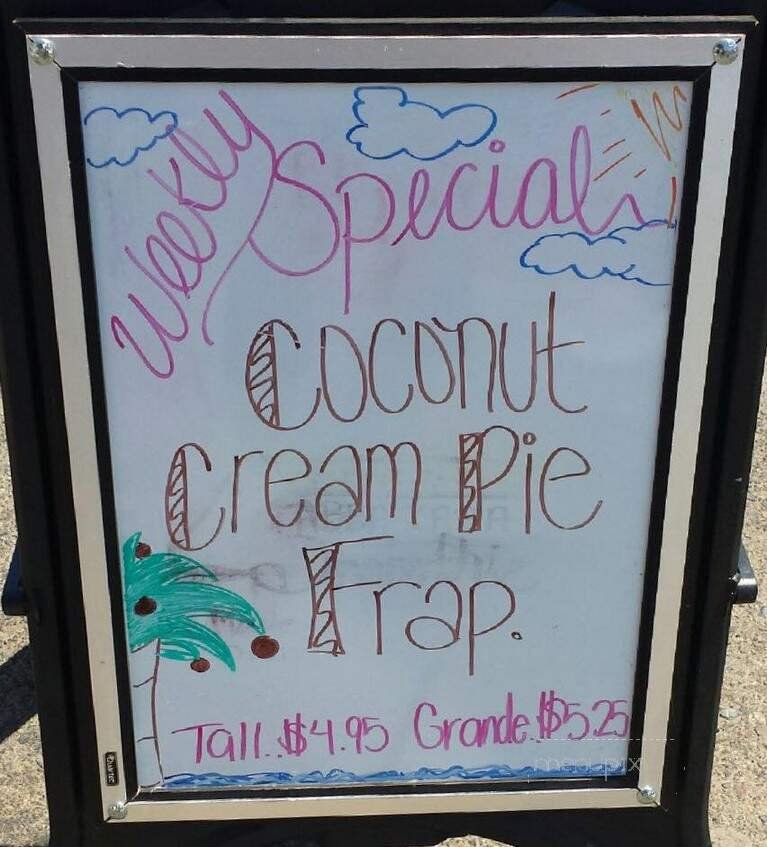 Weekly Special
Coconut
Cream Pie
Frap.
Tall..$4.95 Grande..$5.25
Quartet